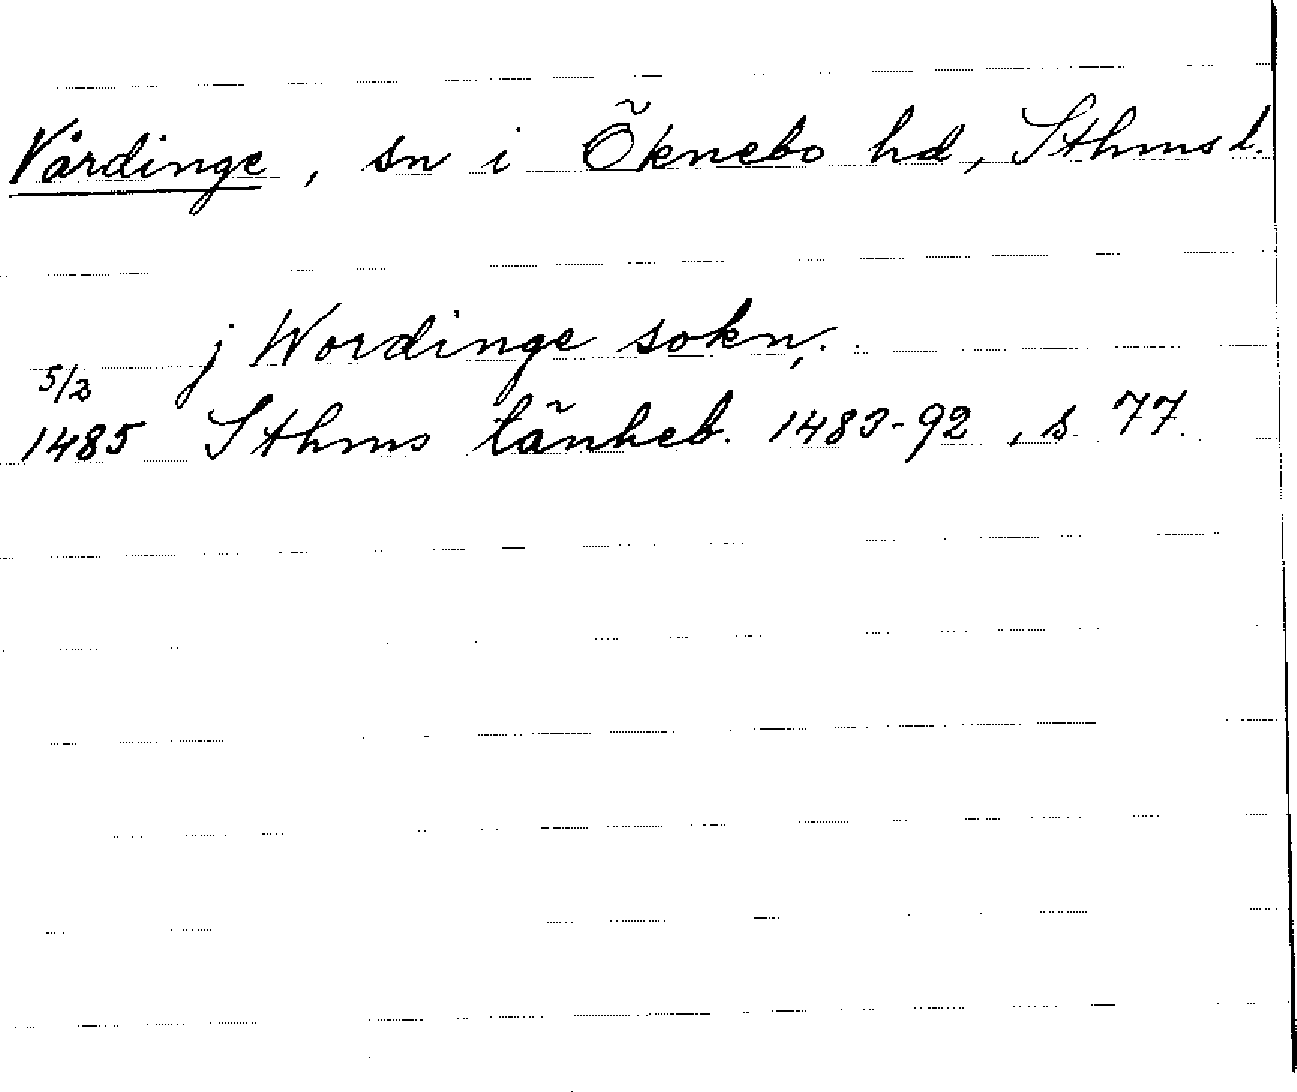 Vårdinge, sn i Öknebo hd, Sthms l.
j Wordinge sokn.
5/2
1485 Sthms tänkeb. 1483-92, s 77.